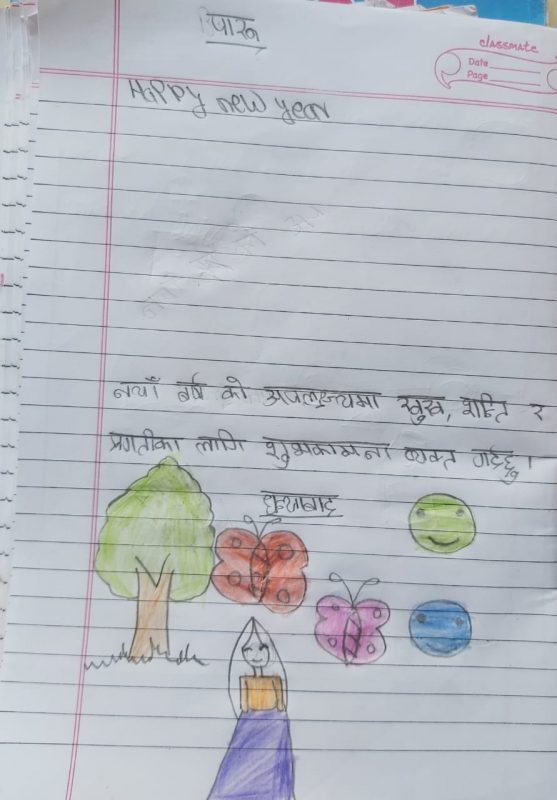 पारू
classmate
Date
Page
Happy new year
नयाँ बर्ष को अपलक्ष्यमा सुख, शान्ति र
प्रगतीका लागि शुभकामना व्यक्त गर्दछु।
धन्यबाद